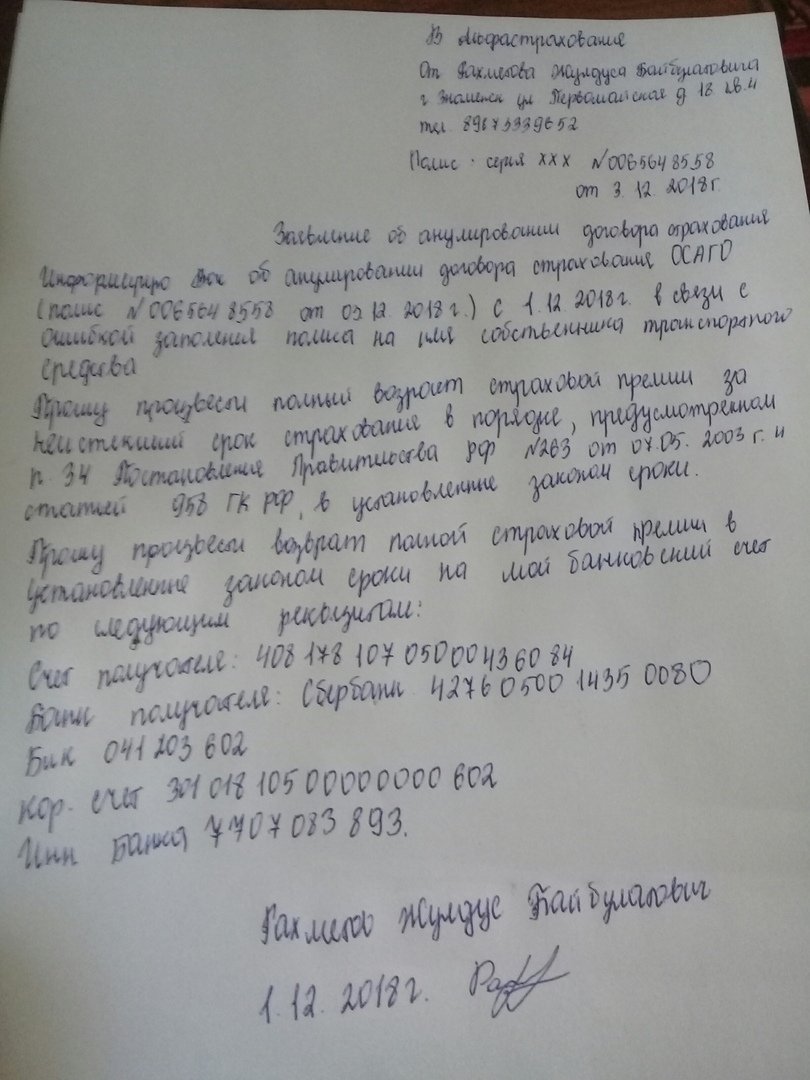 В Альфастрахование
От Рахметова Жулдуса Байбулатовича
г Знаменск ул Первомайская д 18 кв. 4
тел. 89673339652
Полис. серия ХХХ №0065648558
от 3.12.2018г
Заявление об анулировании договора страхования
Информирую Вас об анулировании договора страхования ОСАГО
(полис №0065648558 от 03.12.2018г.) с 1.12.2018г. в связи с
ошибкой заполения полиса на имя собственника транспортного
средства
Прошу произвести полный возврат страховой премии за
неистекший срок страхования в порядке, предусмотренном
п. 34 Постановления Правительства РФ №263 от 07.05.2003г. и
статьей 958 ГК РФ, в установленные законом сроки.
Прошу произвести возврат полной страховой премии в
установленные законом сроки на мой банковский счет
по следующим реквизитам:
Счет получателя: 408 178 107 0500043 60 84
Банк получателя: Сбербанк 4276 0500 1435 0080
Бик 041 203 602
Кор. счет 301 018 105 00000000 602
Инн Банка 7707 083 893.
Рахметов Жулдус Байбулатович
1.12.2018г.